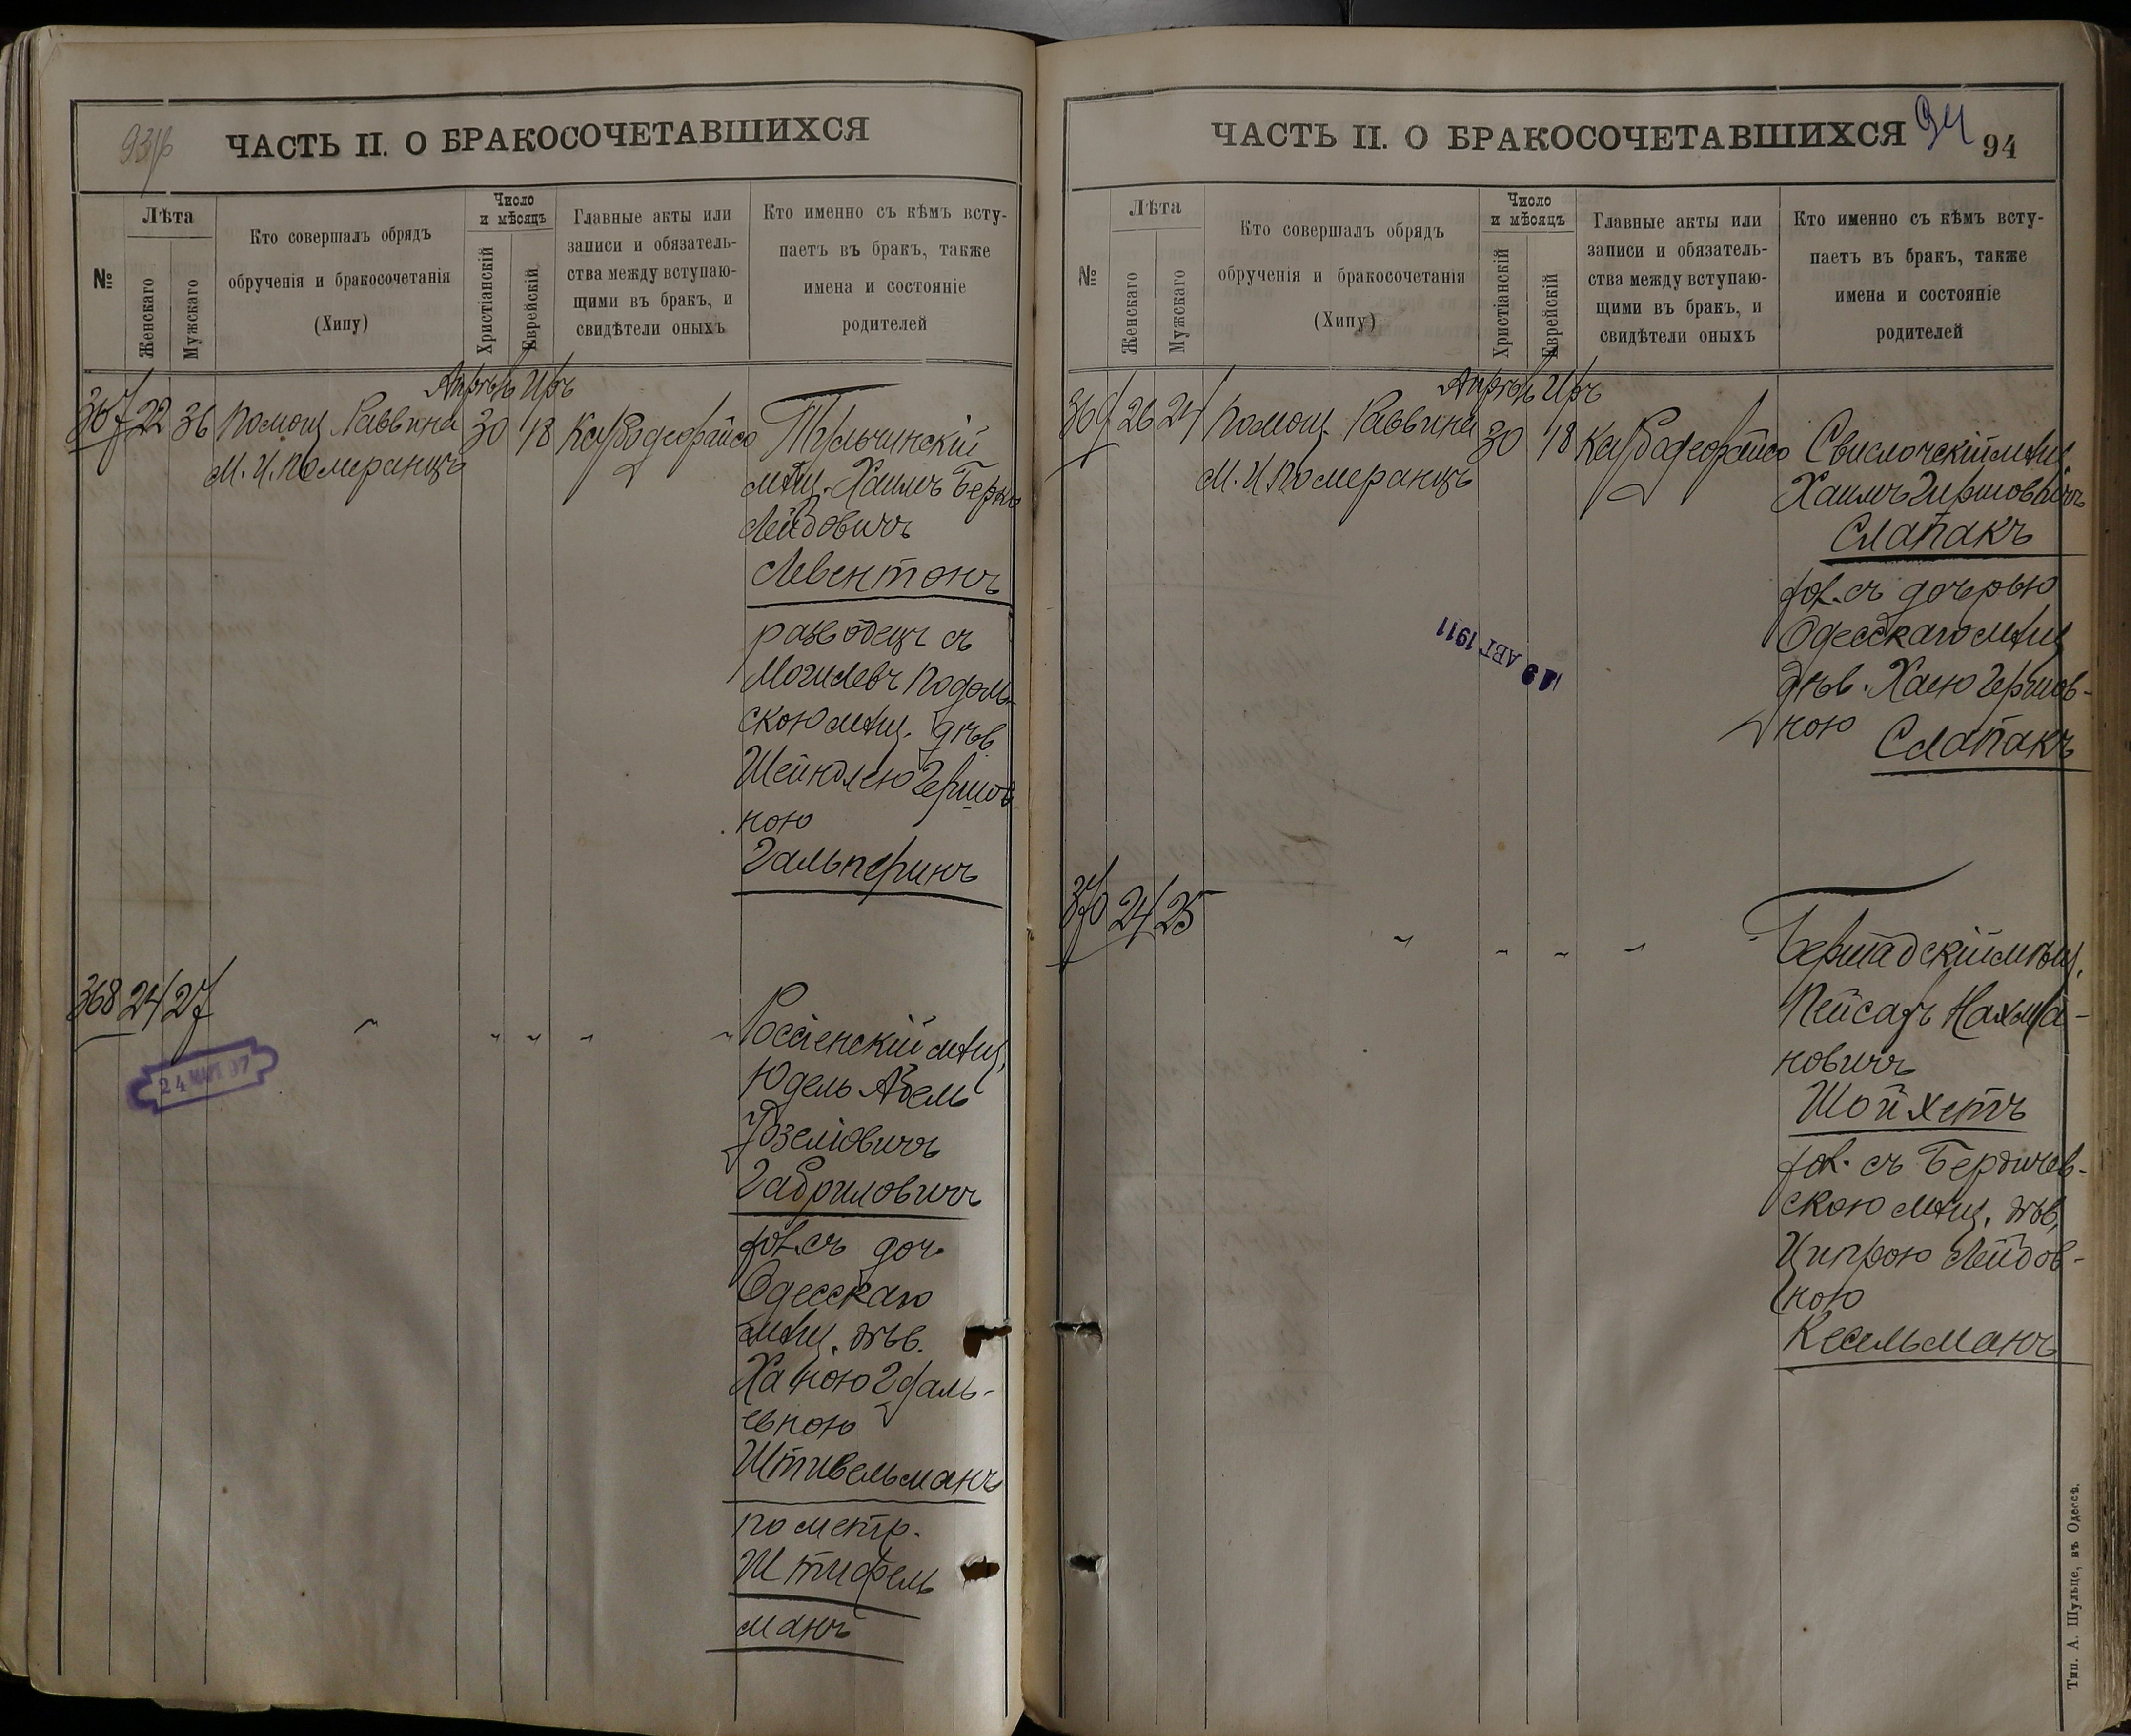 93
ЧАСТЬ II. О БРАКОСОЧЕТАВШИХСЯ
№
Лѣта
Женскаго
Мужскаго
Кто совершалъ обрядъ
обрученія и бракосочетанія
(Хипу)
Число
и мѣсяцъ
Христіанскій
Еврейскій
Главные акты или
записи и обязатель-
ства между вступаю-
щими въ бракъ, и
свидѣтели оныхъ
Кто именно съ кѣмъ всту-
паетъ въ бракъ, также
имена и состояніе
родителей
Апрѣль Iръ
367 22 36 Помощ. Раввина 30 18
М. И. Померанцъ
Тульчинскій
мѣщ. Хаимъ Берко
Лейбовичъ
Левентонъ
разводецъ съ
Могилевъ Подоль
скою мѣщ. дѣв
Шейндлею Гершов
ною
Гальперинъ
368 24 27
24 МАР 97
Россіенскій мѣщ.
Юдель Абель
Іозеліовичъ
Габриловичъ
хол. съ доч.
Одесскаго
мѣщ. дѣв.
Ханою Гдаль-
евною
Штивельманъ
по метр.
Штифель
манъ
ЧАСТЬ II. О БРАКОСОЧЕТАВШИХСЯ
94
94
№
Лѣта
Женскаго
Мужскаго
Кто совершалъ обрядъ
обрученія и бракосочетанія
(Хипу)
Число
и мѣсяцъ
Христіанскій
Еврейскій
Главные акты или
записи и обязатель-
ства между вступаю-
щими въ бракъ, и
свидѣтели оныхъ
Кто именно съ кѣмъ всту-
паетъ въ бракъ, также
имена и состояніе
родителей
Апрѣль Iръ
369 26 24 Помощ. Раввина 30 18
М. И. Померанцъ
Свислочскій мѣщ.
Хаимъ Гершовичъ
Слапакъ
хол. съ дочерью
Одесскаго мѣщ
дѣв. Хаею Гершов-
ною
Слапакъ
АВГ 1911
370 24 25
Бершадскій мѣщ.
Пейсахъ Нахма-
новичъ
Шойхетъ
хол. съ Бердичев-
скою мѣщ. дѣв.
Ципрою Лейбов-
ною
Кесельманъ
Тип. А. Шульце, въ Одессѣ.